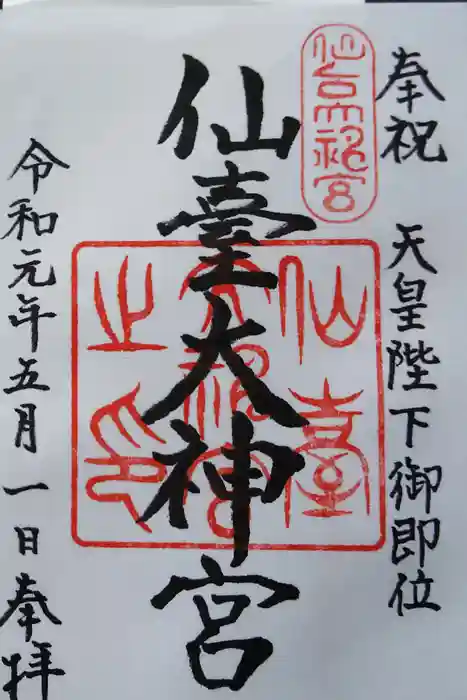 奉祝 天皇陛下御即位
仙台大神宮
仙臺大神宮
仙臺大神宮之印
令和元年五月一日奉拝